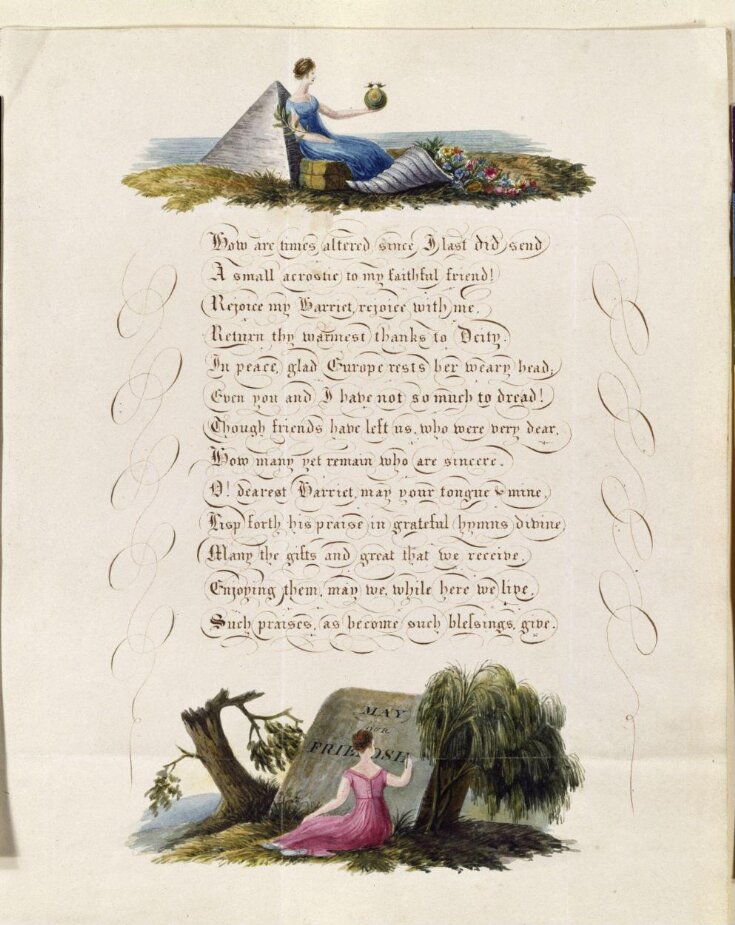 How are times altered, since I last did send
A small acrostic to my faithful friend!
Rejoice my Harriet, rejoice with me,
Return thy warmest thanks to Deity.
In peace, glad Europe rests her weary head;
Even you and I have not so much to dread!
Though friends have left us, who were very dear,
How many yet remain who are sincere.
O! dearest Harriet, may your tongue & mine,
Lisp forth his praise in grateful hymns divine
Many the gifts and great that we receive,
Enjoying them, may we, while here we live,
Such praises, as become such bleſsings, give.
MAY
OUR
FRIENDSH